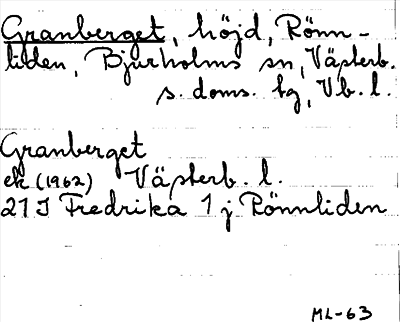 Granberget, höjd, Rönn-
liden, Bjurholms sn, Västerb.
s. doms. tg, Vb. l.
Granberget
ek (1962) Västerb. l.
21 I Fredrika 1 j Rönnliden
ML-63